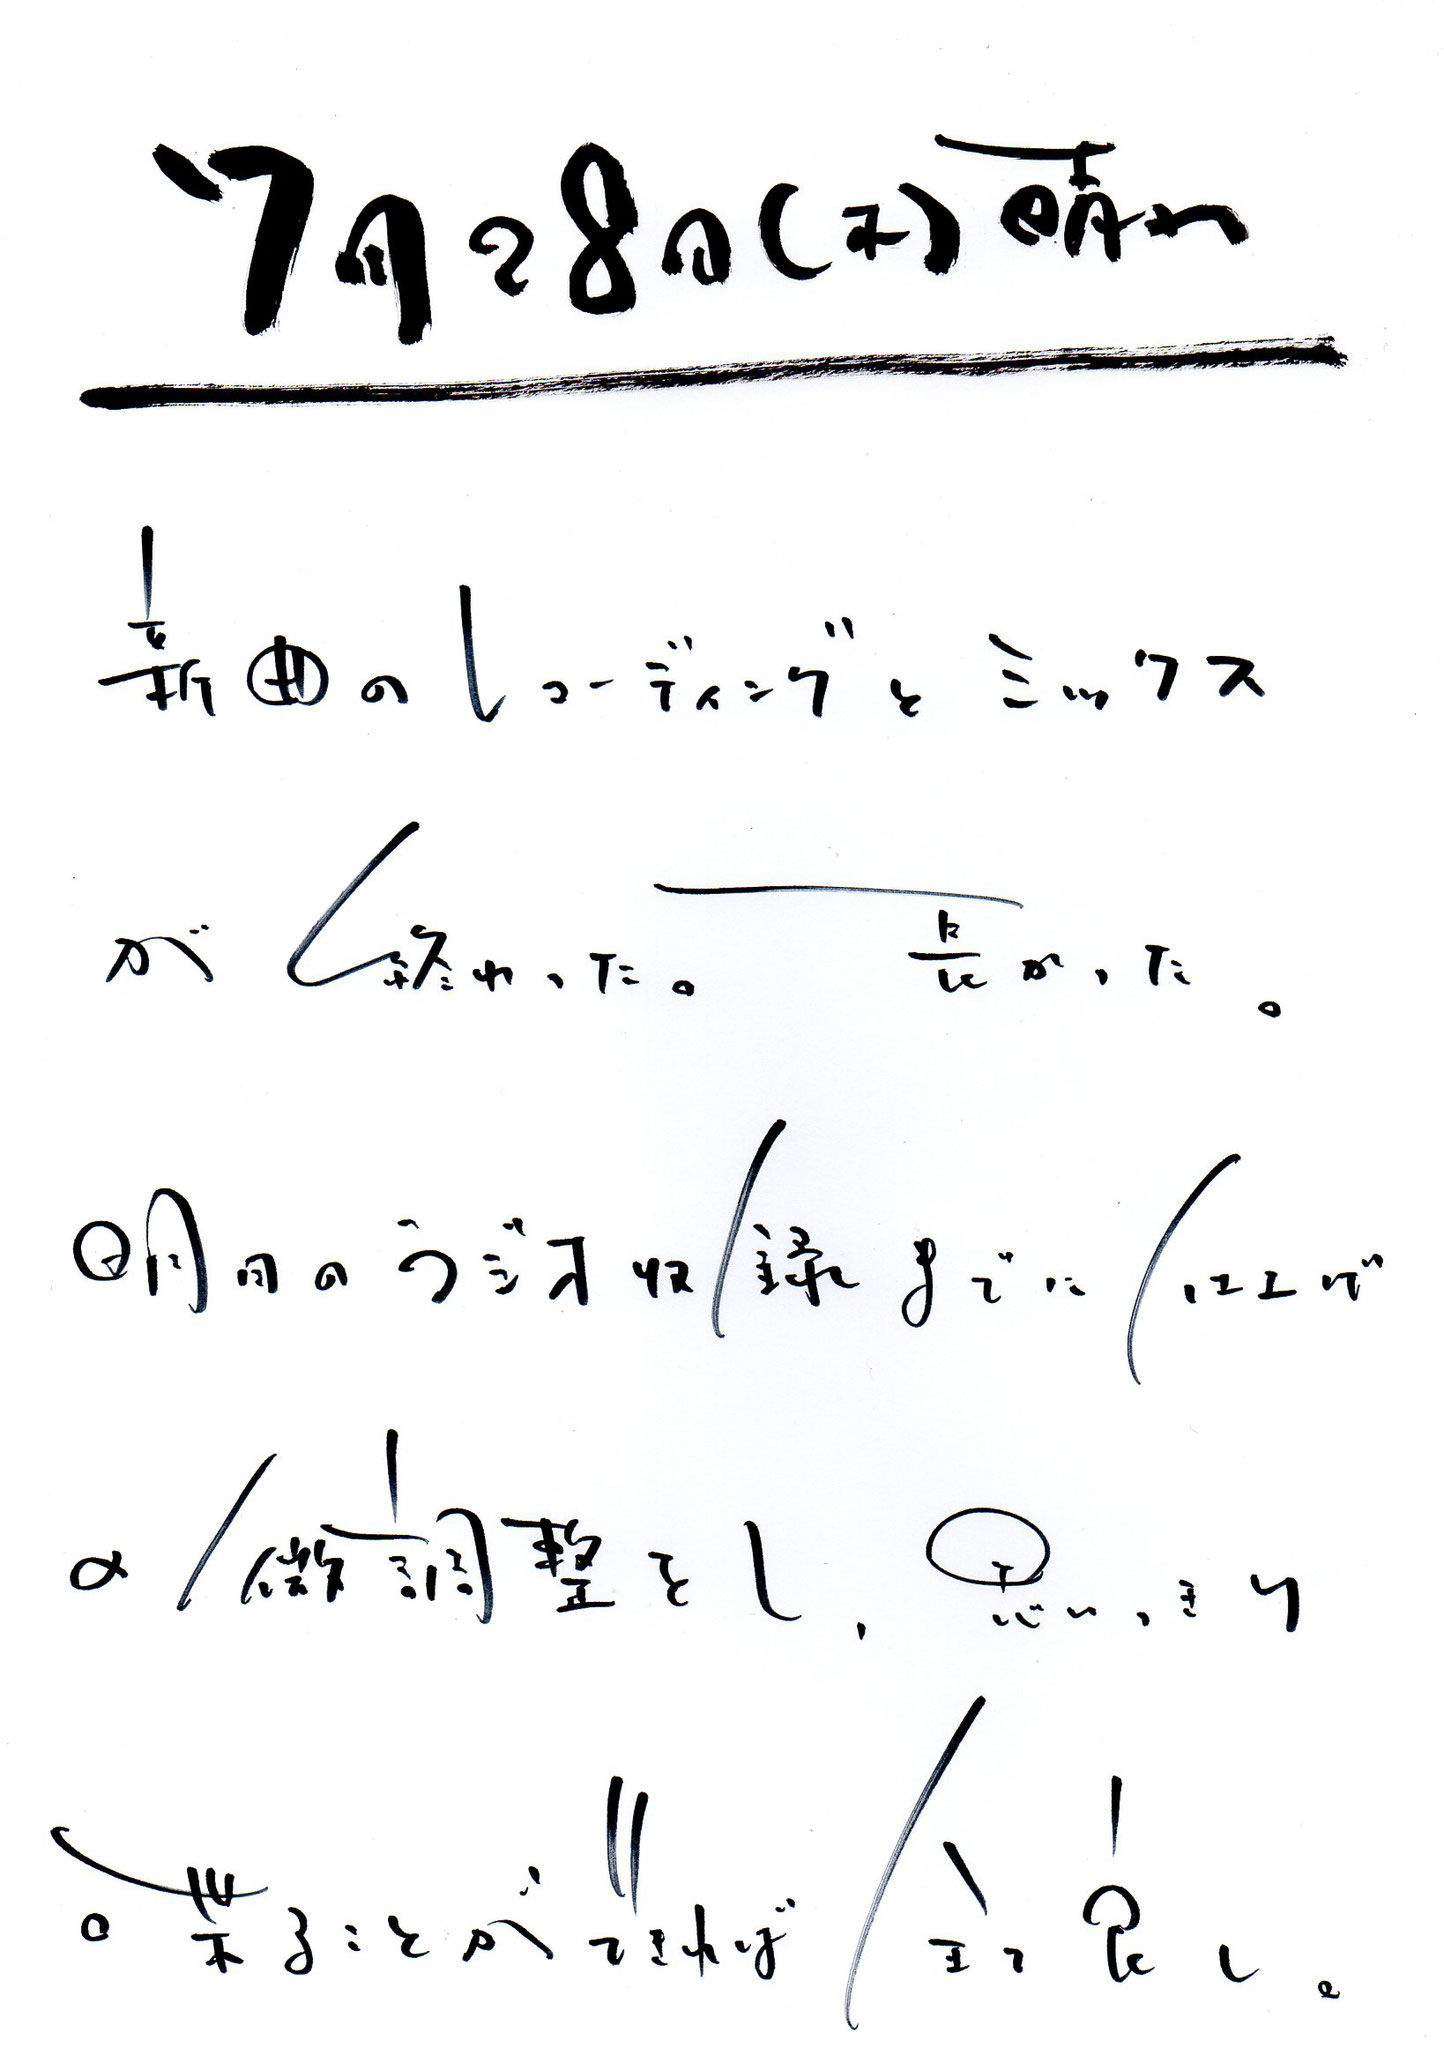 7月28日(木)晴れ
新曲のレコーディングとミックス
が終わった。長かった。
明日のラジオ収録までに仕上げ
の微調整をし、思いっきり
喋ることができれば全て良し。